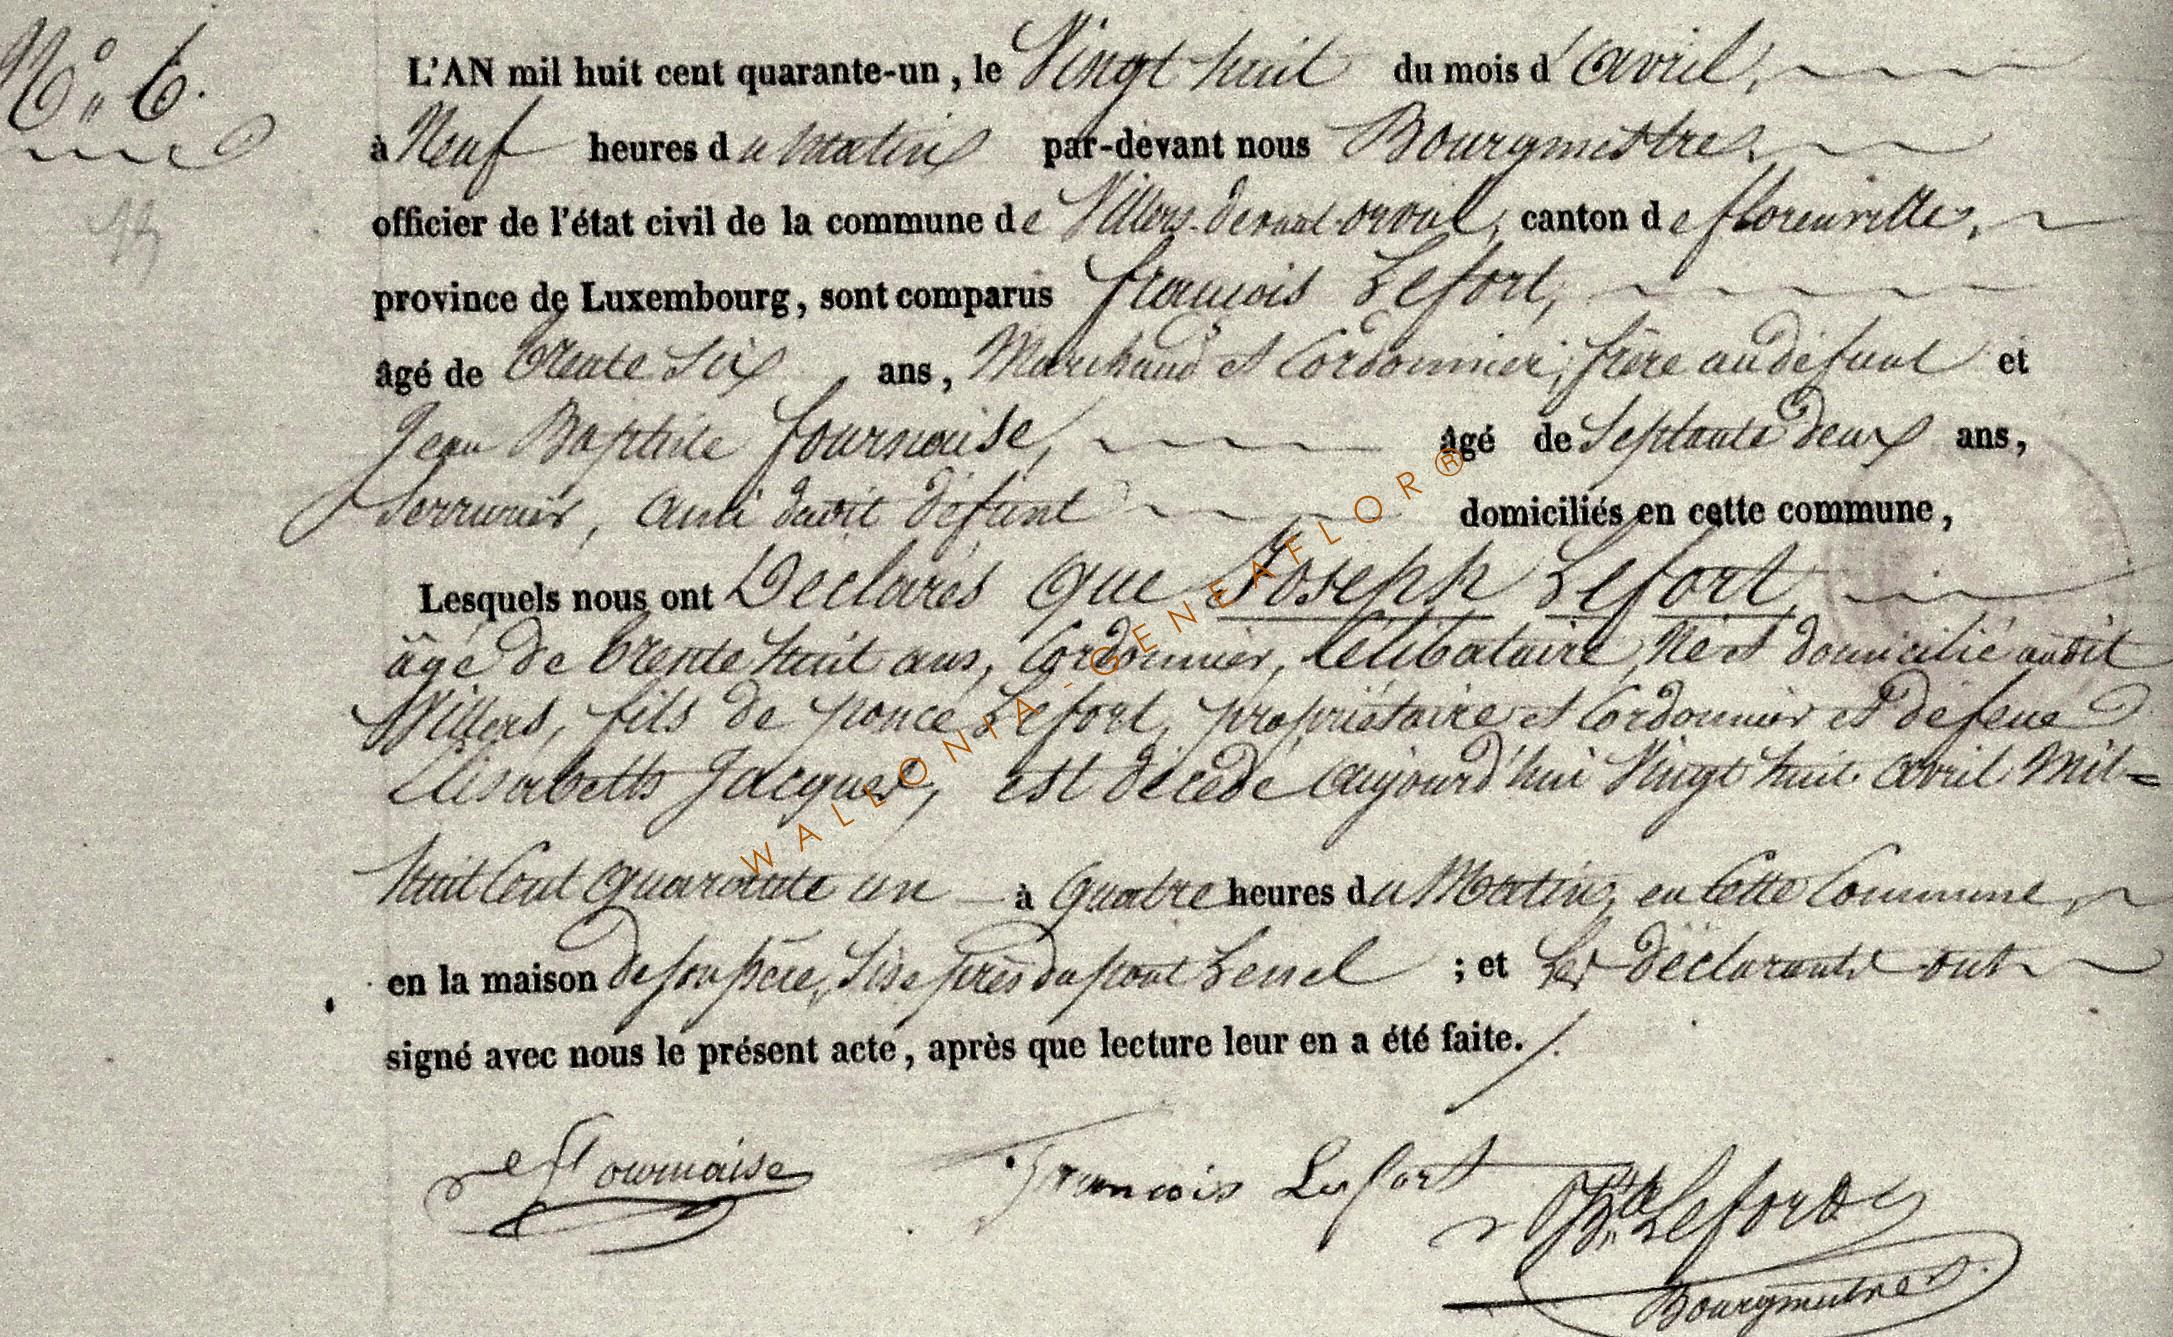 N° 6.
L'AN mil huit cent quarante-un, le Vingt huit du mois d'avril,
à Neuf heures du Matin par-devant nous Bourgmestre,
officier de l'état civil de la commune de Villers-devant-orval, canton de florenville,
province de Luxembourg, sont comparus françois Lefort,
âgé de trente Six ans, Marchand et Cordonnier, frère au défunt et
Jean Baptiste fournaise, âgé de Septante deux ans,
Serrurier, ami dudit défunt domiciliés en cette commune,
Lesquels nous ont Déclarés que Joseph Lefort
âgé de trente huit ans, Cordonnier, Célibataire, Né et domicilié audit
Villers, fils de ponce Lefort, propriétaire et Cordonnier et défunte
Elisabeth Jacques, est décédé aujourd'hui Vingt huit avril Mil=
huit Cent quarante un à quatre heures du Matin, en Cette Commune
en la maison de son père, Sise près du pont ; et Les déclarants ont
signé avec nous le présent acte, après que lecture leur en a été faite./.
fournaise François Lefort Lefort
Bourgmestre
WALLONIA-GENEAFLOR®